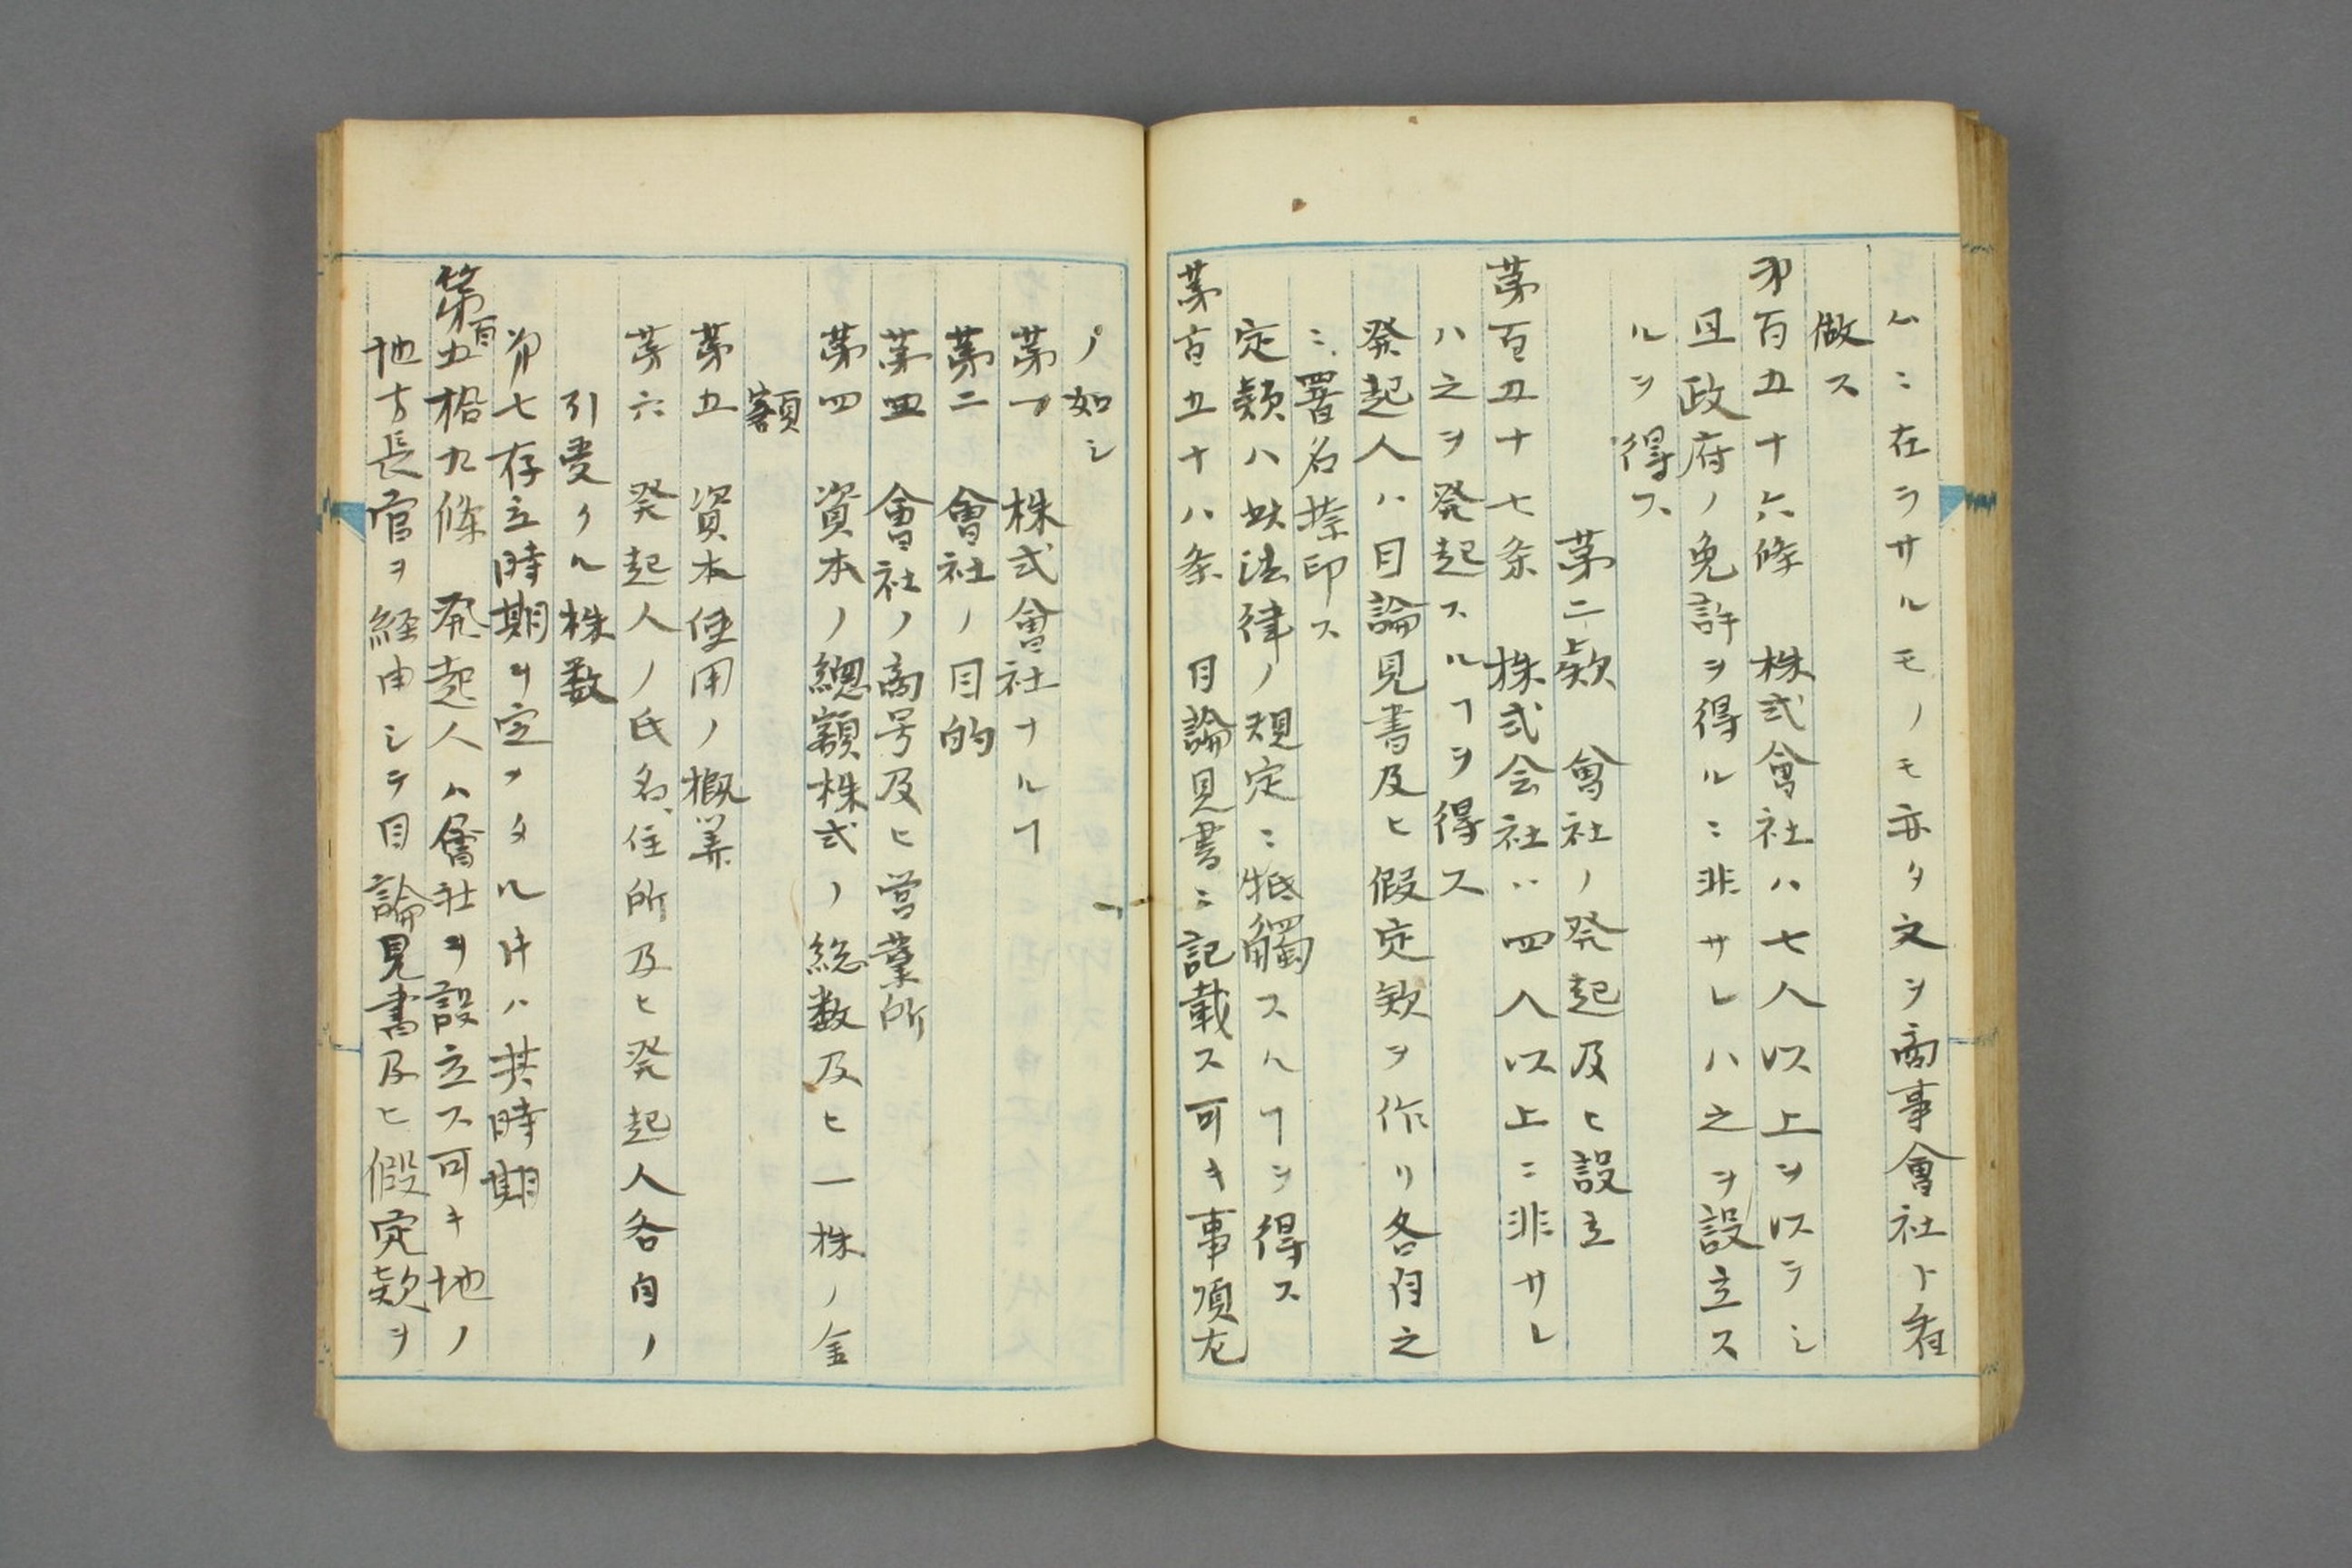 ムニ在ラサルモノモ亦タ之ヲ商事會社ト看
做ス
第百五十六條　株式會社ハ七人以上ヲ以テシ
且政府ノ免許ヲ得ルニ非サレハ之ヲ設立ス
ルヲ得ス
第二款　會社ノ発起及ヒ設立
第百五十七条　株式会社ハ四人以上ニ非サレ
ハ之ヲ発起スルヿヲ得ス
発起人ハ目論見書及ヒ假定款ヲ作リ各自之
ニ署名捺印ス
定款ハ此法律ノ規定ニ牴觸スルヿヲ得ス
第百五十八条　目論見書ニ記載ス可キ事項左
ノ如シ
第一　株式會社ナルヿ
第二　會社ノ目的
第三　會社ノ商号及ヒ営業所
第四　資本ノ總額株式ノ総数及ヒ一株ノ金
額
第五　資本使用ノ概算
第六　発起人ノ氏名、住所及ヒ発起人各自ノ
引受クル株数
第七存立時期ヲ定メタルトキハ其時期
第百五拾九條　発起人ハ會社ヲ設立ス可キ地ノ
地方長官ヲ経由シテ目論見書及ヒ假定款ヲ